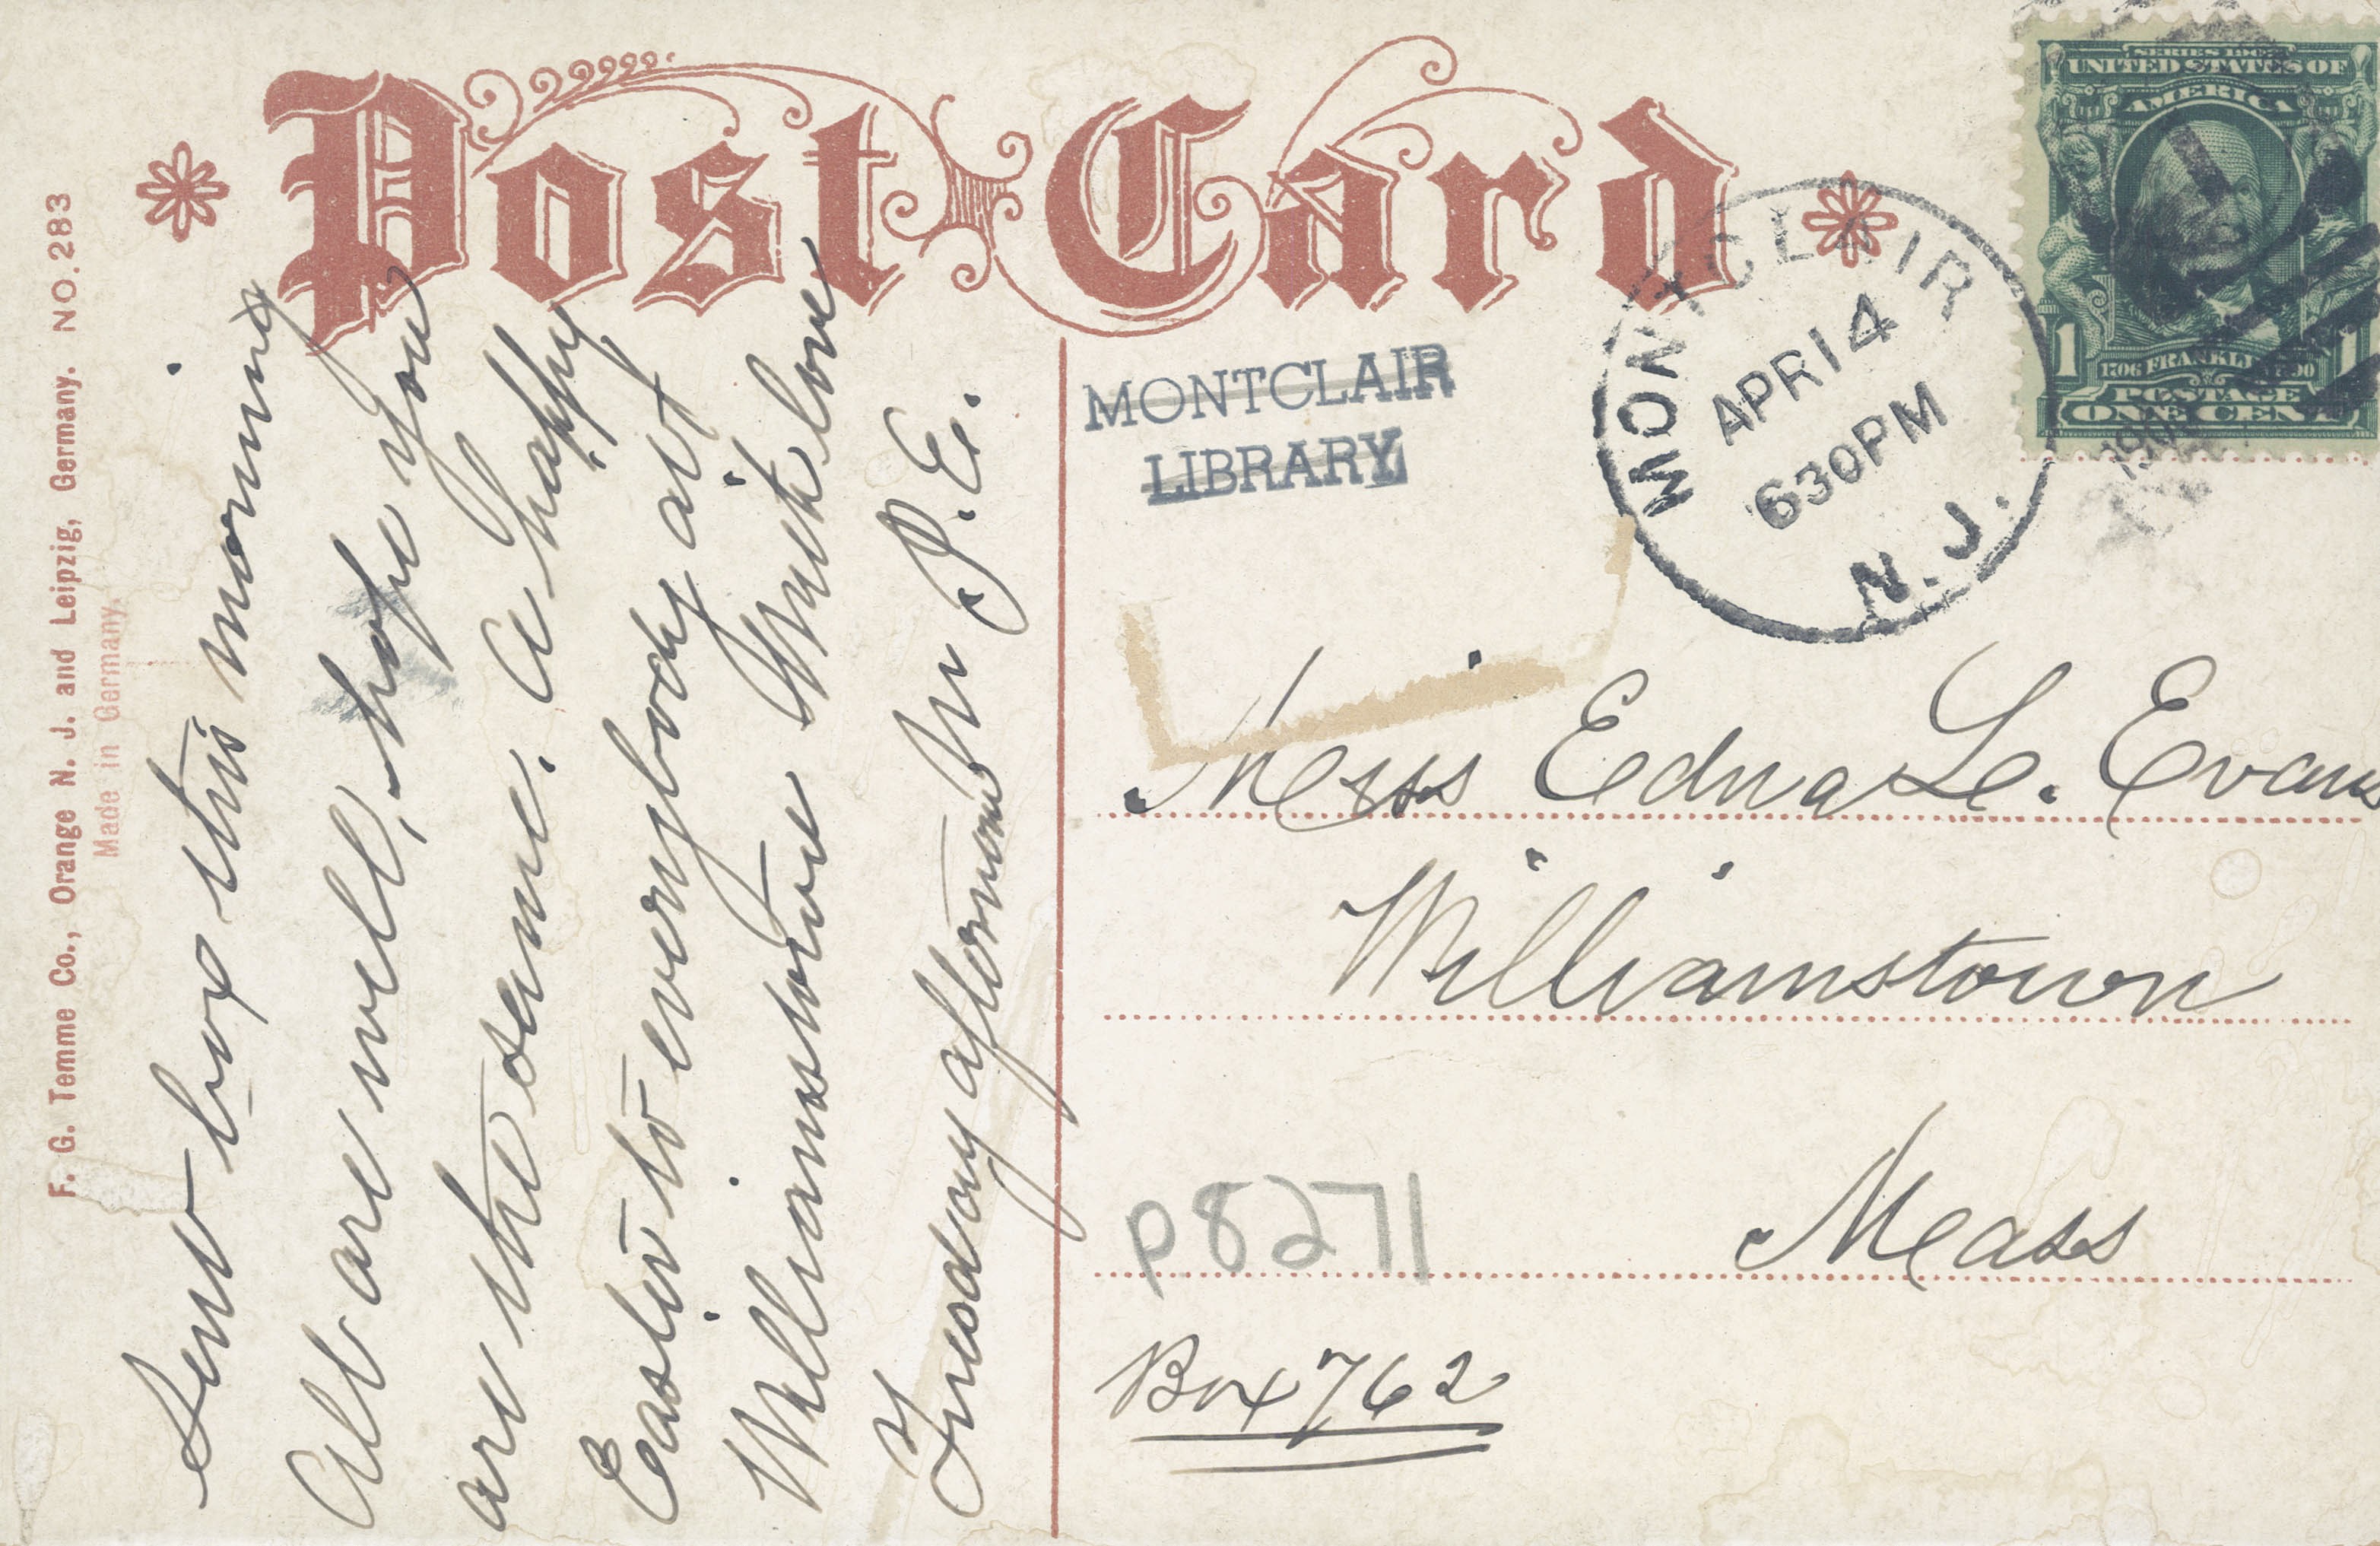 Post Card
F. G. Temme Co., Orange N. J. and Leipzig, Germany. NO. 283
Made in Germany.
Sent box this morning
All are well, hope you
are the same. A happy
Easter to everybody at
Williamstown Much love
Tuesday afternoon M P. E.
MONTCLAIR
LIBRARY
MONTCLAIR
APR 14
630PM
N.J.
SERIES 1902
UNITED STATES OF
AMERICA
1706 FRANKLIN 1790
1 1
POSTAGE
ONE CENT
Miss Edna L. Evans
Williamstown
Mass
P8271
Box 762